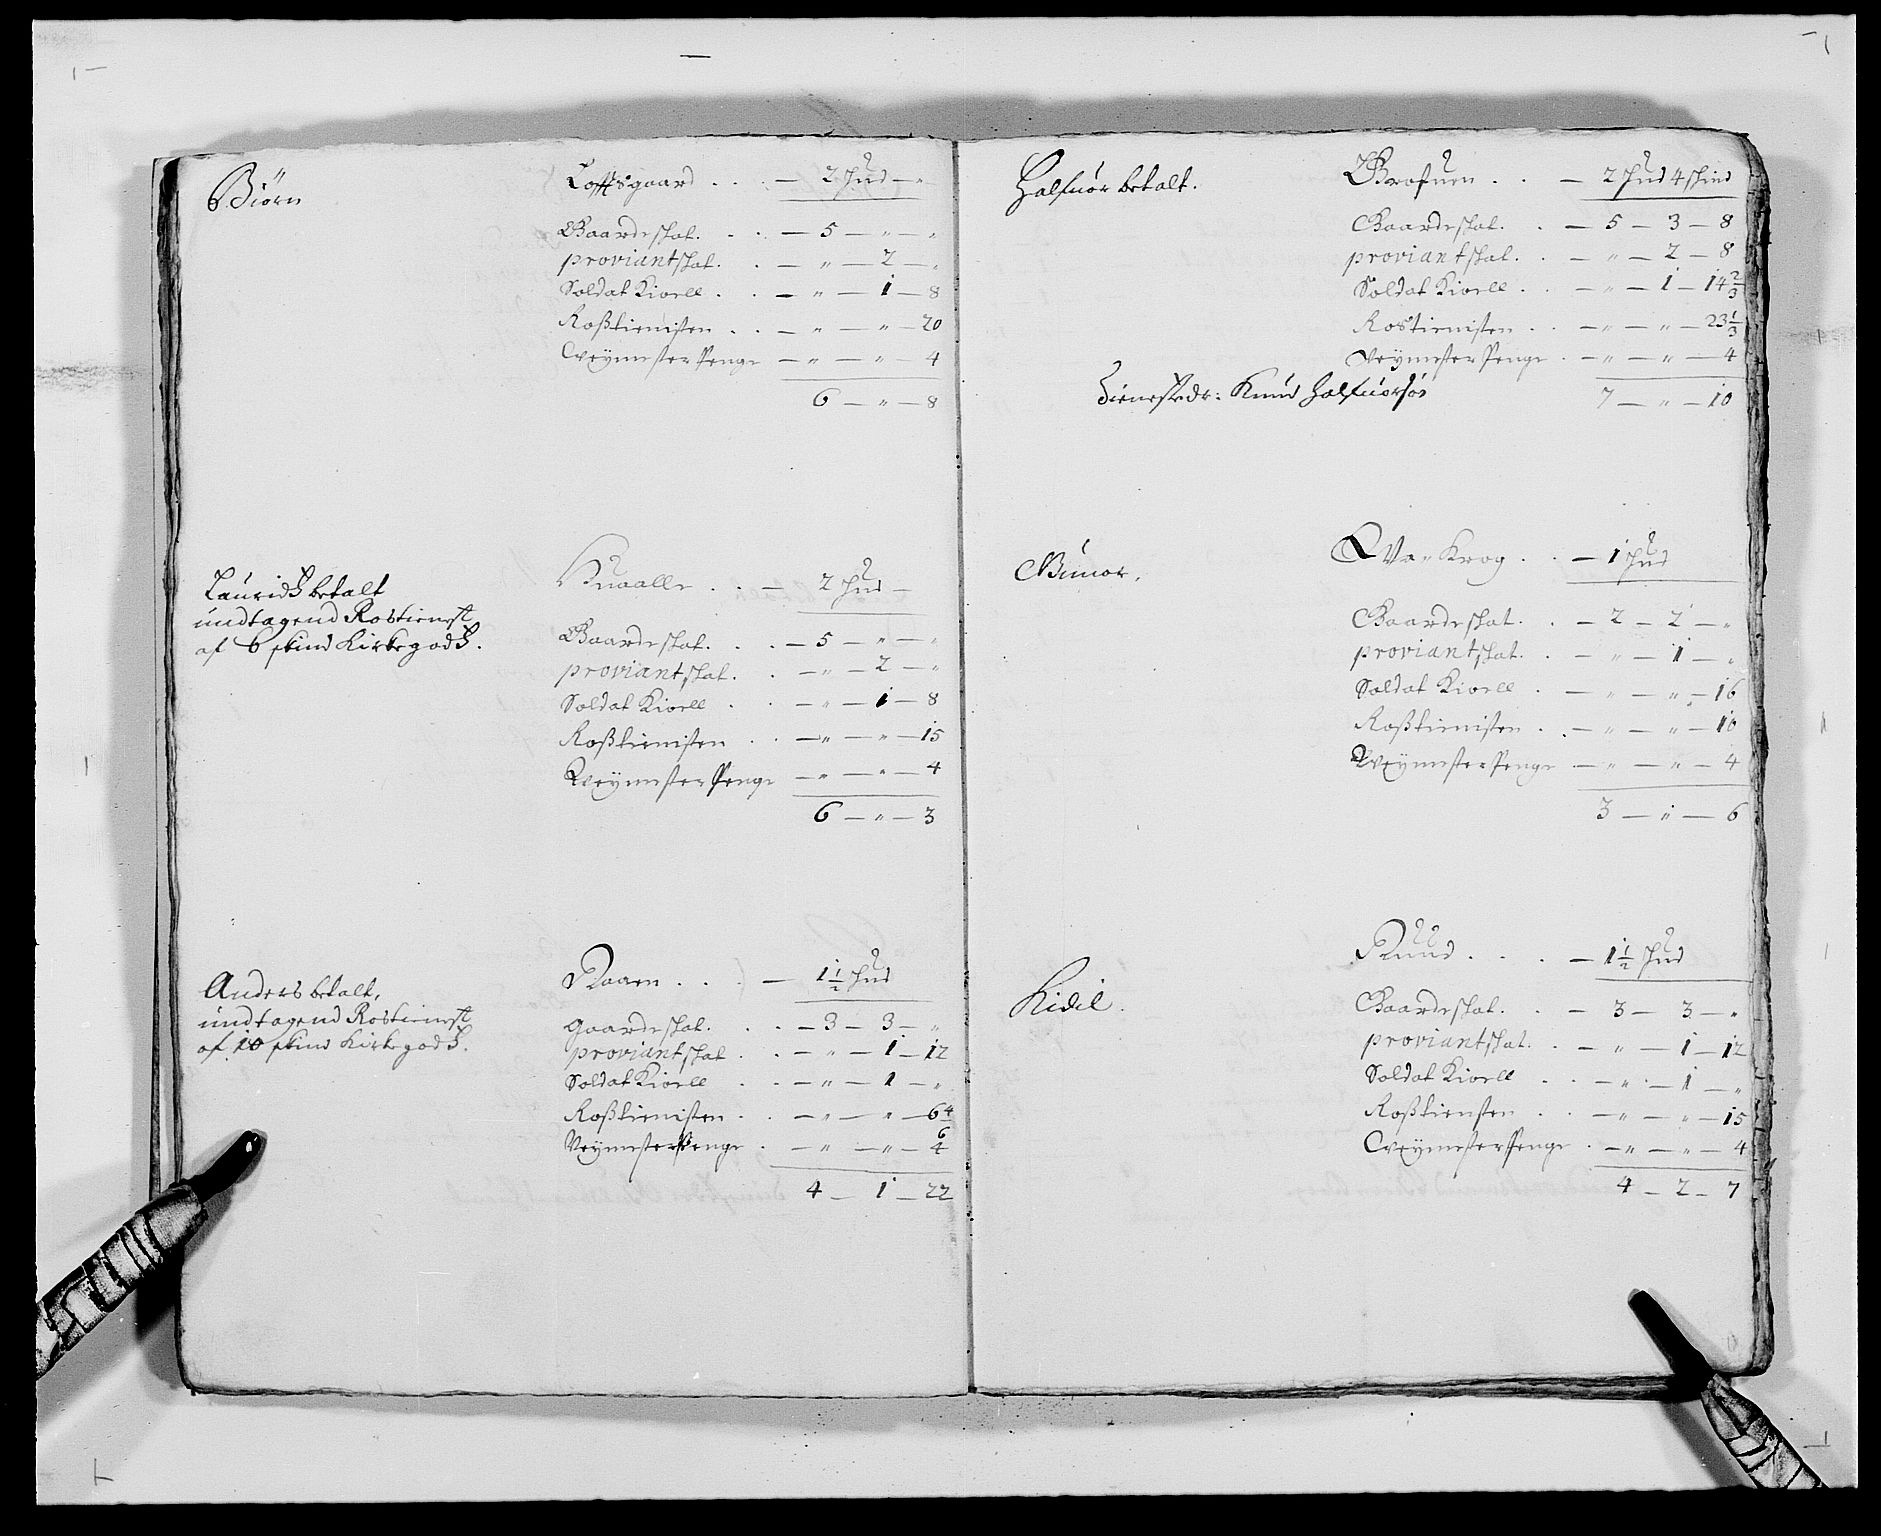 Biørn
Loffsgaard . . . — 2 hud — "
Gaardeskat. . . — 5 — " — "
proviantskat. . — " — 2 — "
Soldat Kiorll . . — " — 1 — 8
Roßtienisten . . — " — " — 20
Veÿmester Penge — " — " — 4
6 — " — 8
Lauridz betalt
undtagend Rostienest
af 6 skind Kirkegodz.
Huaalle . . — 2 hud —
Gaardeskat. . . — 5 — " — "
proviantskat. . — " — 2 — "
Soldat Kiorll . . — " — 1 — 8
Roßtienisten . . — " — " — 15
Veÿmester Penge — " — " — 4
6 — " — 3
Anders betalt,
undtagend Rostienest
af 10 skind Kirkegodz.
Raaen . . . — 1½ hud
gaardeskat. . . — 3 — 3 — "
proviantskat . . — " — 1 — 12
Soldat Kiorll . . — " — 1 — "
Roßtienisten . . — " — " — 6 4/6
Veÿmester Penge . — " — " — 4
4 — 1 — 22
Halfuor betalt.
Grafuen . . — 2 hud 4 skind
Gaardeskat. . — 5 — 3 — 8
proviantskat. . — " — 2 — 8
Soldat Kiorll . . — " — 1 — 14 2/3
Rostienisten . . — " — " — 23 1/3
Veÿmester Penge . — " — " — 4
Tienestedr: Knud Halfuorsøn
7 — " — 10
Gunor,
Krog . . — 1 hud
Gaardeskat. . — 2 — 2 — "
proviantskat. . — " — 1 — "
Soldat Kiorll . — " — " — 16
Roßtienisten . . — " — " — 10
Veÿmester Penge — " — " — 4
3 — 1 — 6
Kidil.
Ruud . . . — 1½ hud
Gaardeskat. . — 3 — 3 — "
proviantskat. . — " — 1 — 12
Soldat Kiorll . . — " — 1 — "
Roßtiensten . . — " — " — 15
Veÿmester Penge . — " — " — 4
4 — 2 — 7